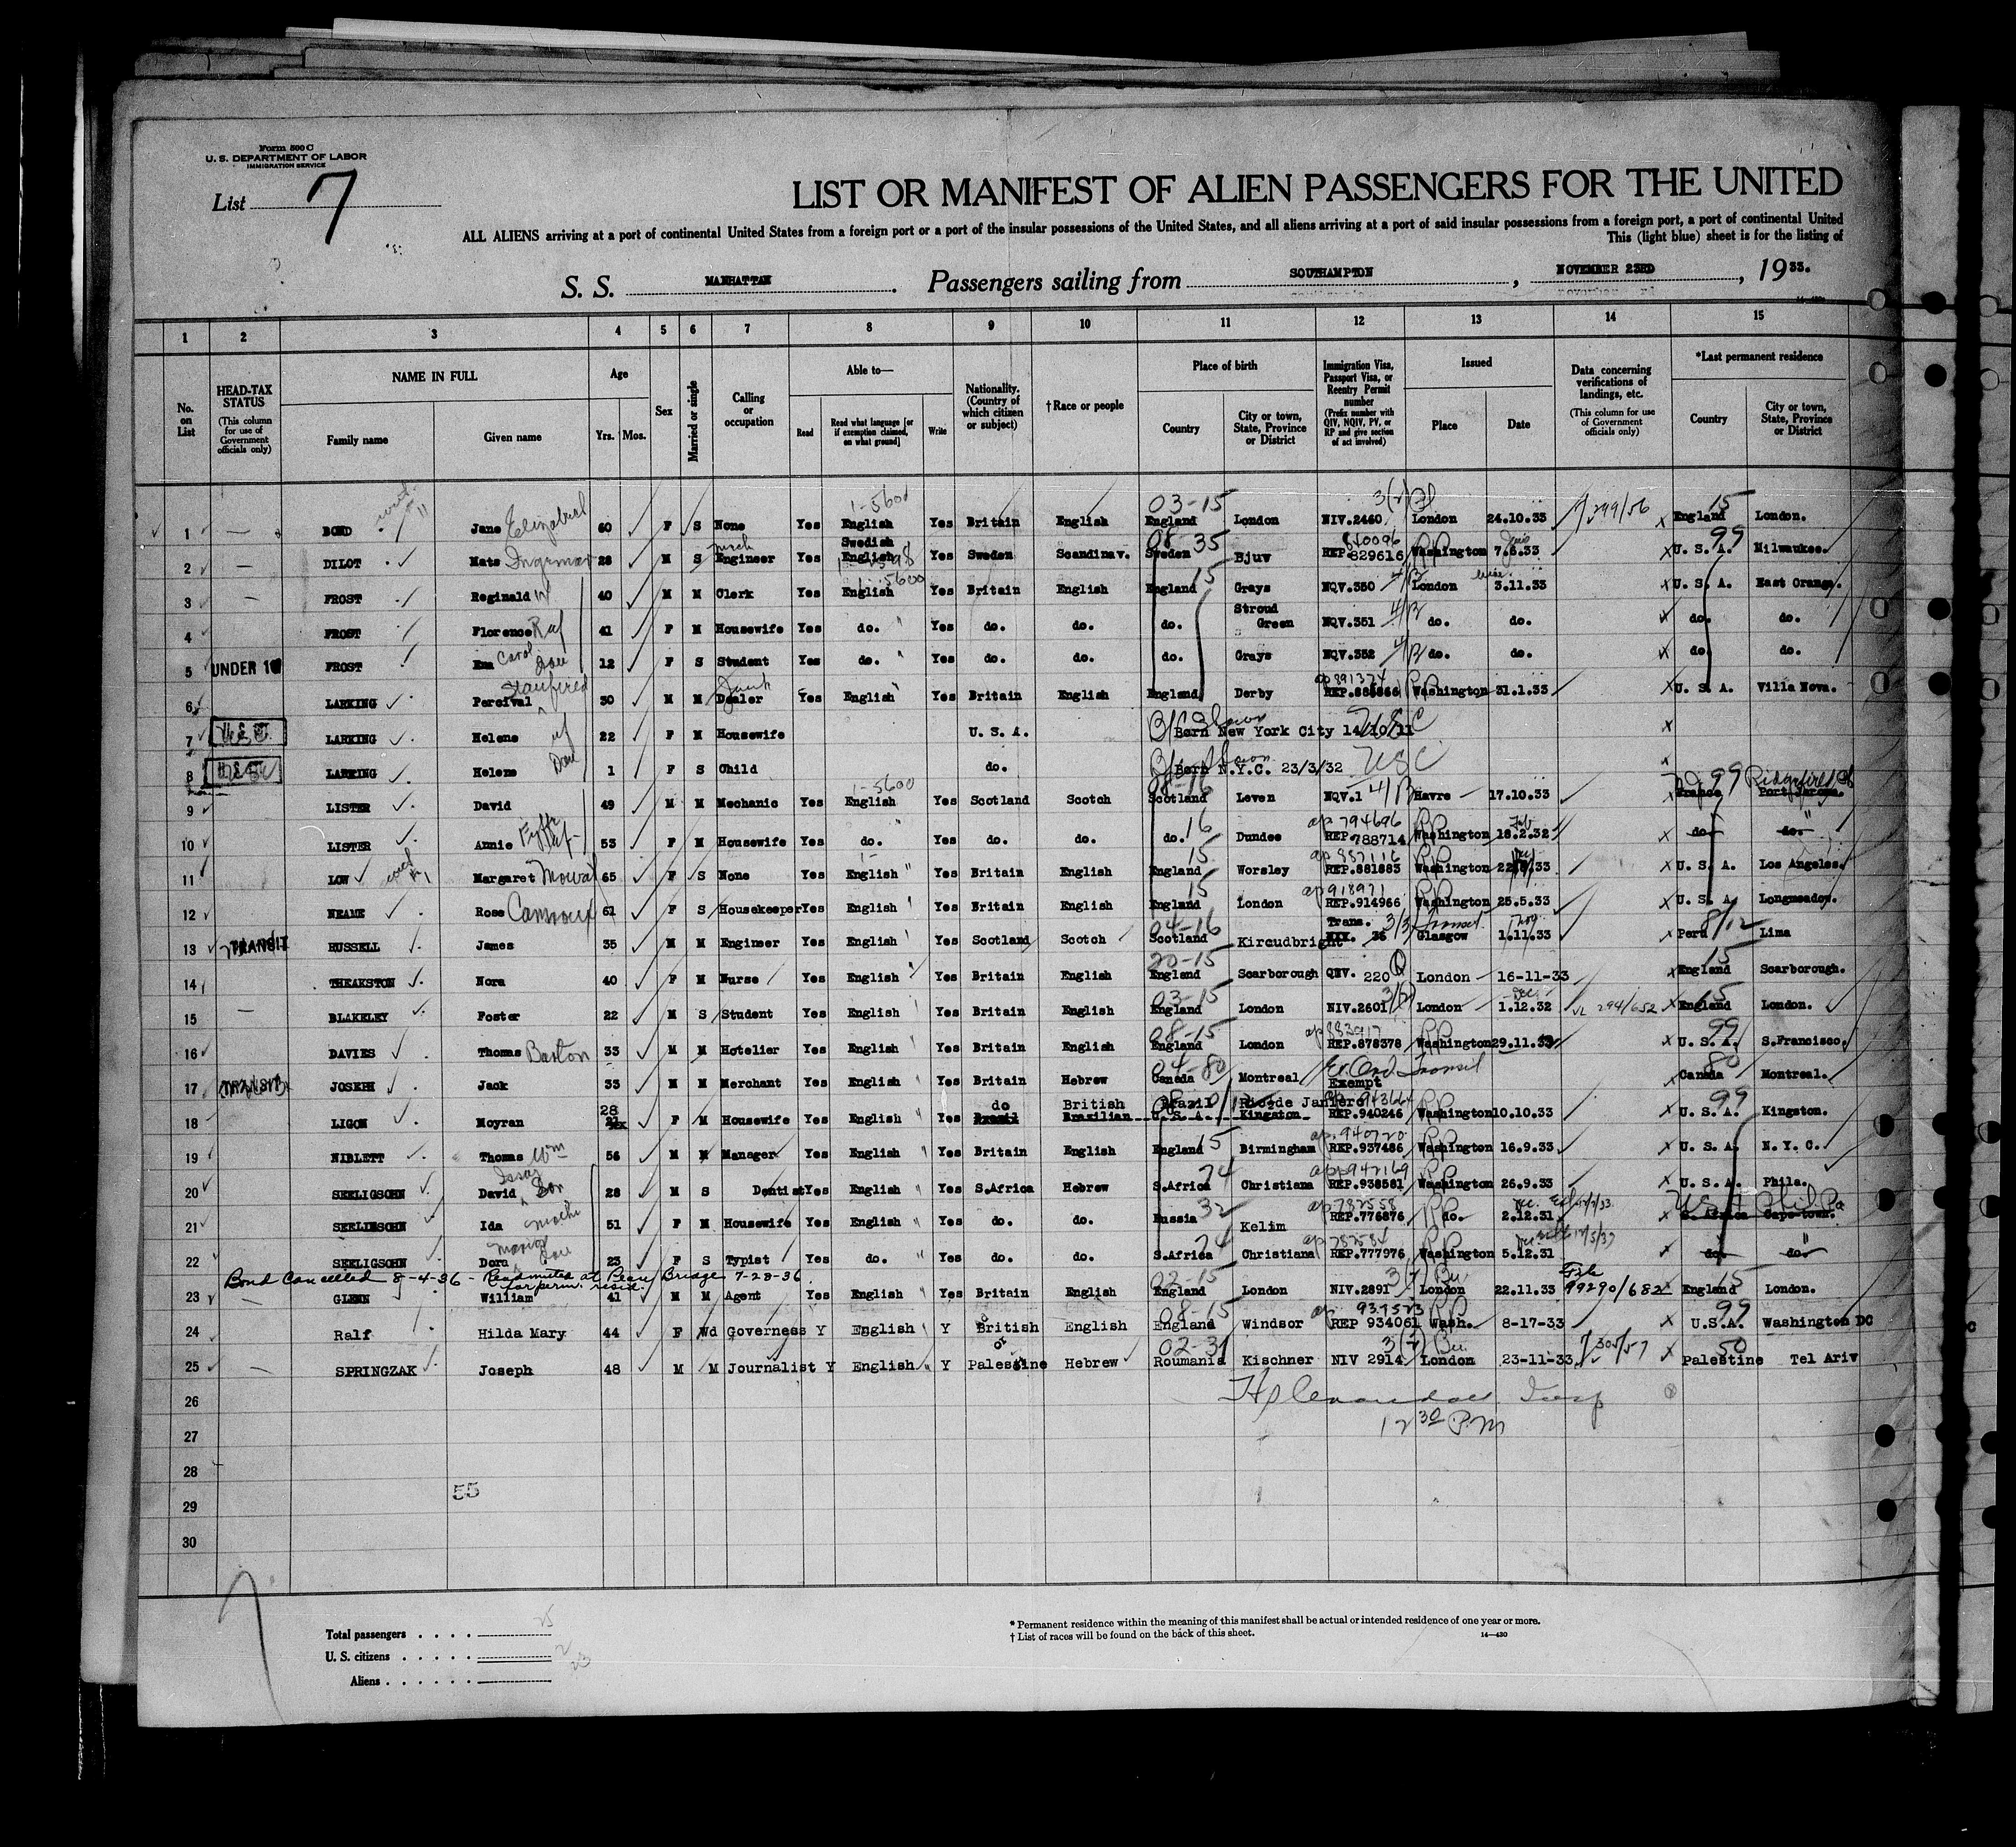 Form 500 C
U. S. DEPARTMENT OF LABOR
IMMIGRATION SERVICE
List 7
LIST OR MANIFEST OF ALIEN PASSENGERS FOR THE UNITED
ALL ALIENS arriving at a port of continental United States from a foreign port or a port of the insular possessions of the United States, and all aliens arriving at a port of said insular possessions from a foreign port, a port of continental United
This (light blue) sheet is for the listing of
S. S. MANHATTAN. Passengers sailing from SOUTHAMPTON, NOVEMBER 23RD, 1933.
1 2 3 4 5 6 7 8 9 10 11 12 13 14 15
No. on List
HEAD-TAX STATUS (This column for use of Government officials only)
NAME IN FULL Family name Given name
Age Yrs. Mos.
Sex
Married or single
Calling or occupation
Able to— Read Read what language [or if exemption claimed, on what ground] Write
Nationality. (Country of which citizen or subject)
†Race or people
Place of birth Country City or town, State, Province or District
Immigration Visa, Passport Visa, or Reentry Permit number (Prefix number with QIV, NQIV, PV, or RP and give section of act involved)
Issued Place Date
Data concerning verifications of landings, etc. (This column for use of Government officials only)
*Last permanent residence Country City or town, State, Province or District
1-5600 03-15 15
1 BOND Jane Elizabeth 60 F S None Yes English Yes Britain English England London NIV.2460 London 24.10.33 299/56 England London.
Swedish 08-35 840096 99
2 DILOT Mats Ingemar 28 M S Engineer Yes English Yes Sweden Scandinav. Sweden Bjuv REP 829616 Washington 7.6.33 U. S. A. Milwaukee.
5600 15
3 FROST Reginald 40 M M Clerk Yes English Yes Britain English England Grays NQV.350 London 3.11.33 U. S. A. East Orange.
4 FROST Florence 41 F M Housewife Yes do. Yes do. do. do. Stroud Green NQV.351 do. do. do. do.
5 UNDER 16 FROST Eva Carol 12 F S Student Yes do. Yes do. do. do. Grays NQV.352 do. do. do. do.
ap 891374
6 LARKING Percival 30 M M Dealer Yes English Yes Britain English England Derby REP.886866 Washington 31.1.33 U. S. A. Villa Nova.
7 LARKING Helene 22 F M Housewife U. S. A. Born New York City 14/10/11 USC
8 LARKING Helene 1 F S Child do. Born N.Y.C. 23/3/32 USC
1-5600 99
9 LISTER David 49 M M Mechanic Yes English Yes Scotland Scotch Scotland Leven NQV.1 Havre 17.10.33 France Port Jerome.
16 ap 794696
10 LISTER Annie 53 F M Housewife Yes do. Yes do. do. do. Dundee REP.788714 Washington 18.2.32 do. do.
15 ap 887116
11 LOW Margaret 65 F S None Yes English Yes Britain English England Worsley REP.881883 Washington U. S. A. Los Angeles.
15 ap 918971
12 NEAME Rose 61 F S Housekeeper Yes English Yes Britain English England London REP.914966 Washington 25.5.33 U. S. A. Longmeadow.
04-16 Trans. Transit 8/12
13 TRANSIT RUSSELL James 35 M M Engineer Yes English Yes Scotland Scotch Scotland Kircudbright NIX. 36 Glasgow 1.11.33 Peru Lima
20-15 15
14 THEAKSTON Nora 40 F M Nurse Yes English Yes Britain English England Scarborough QNV. 220 London 16-11-33 England Scarborough.
03-15 15
15 BLAKELEY Foster 22 M S Student Yes English Yes Britain English England London NIV.2601 London 1.12.32 294/652 England London.
08-15 ap 883917 99
16 DAVIES Thomas Barton 33 M M Hotelier Yes English Yes Britain English England London REP.878378 Washington 29.11.33 U. S. A. S.Francisco.
04-80 Transit 80
17 TRANSIT JOSEPH Jack 33 M M Merchant Yes English Yes Britain Hebrew Canada Montreal Exempt Canada Montreal.
28 do British Brazil Rio de Janiero 99
18 LIGON Moyran F M Housewife Yes English Yes Brazil Brazilian U. S. A. Kingston REP.940246 Washington 10.10.33 U. S. A. Kingston.
15 ap. 940720
19 NIBLETT Thomas Wm 56 M M Manager Yes English Yes Britain English England Birmingham REP.937486 Washington 16.9.33 U. S. A. N. Y. C.
74 ap 942169
20 SEELIGSOHN David Son 28 M S Dentist Yes English Yes S.Africa Hebrew S.Africa Christiana REP.938581 Washington 26.9.33 U. S. A. Phila.
32 ap 782558
21 SEELIGSOHN Ida 51 F M Housewife Yes English Yes do. do. Russia Kelim REP.776876 do. 2.12.31 S. Africa Cape-town.
74 ap 782584
22 SEELIGSOHN Dora 23 F S Typist Yes do. Yes do. do. S.Africa Christiana REP.777976 Washington 5.12.31 do. do.
Bond Cancelled 8-4-36 - Readmitted at Peace Bridge 7-28-36 for perm. resid. 02-15 File 15
23 GLENN William 41 M M Agent Yes English Yes Britain English England London NIV.2891 London 22.11.33 99290/682 England London.
08-15 ap 937523 99
24 Ralf Hilda Mary 44 F Wd Governess Y English Y British English England Windsor REP 934061 Wash. 8-17-33 U.S.A. Washington DC
02-31 50
25 SPRINGZAK Joseph 48 M M Journalist Y English Y Palestine Hebrew Roumania Kischner NIV 2914 London 23-11-33 305/57 Palestine Tel Ariv
26
12 30 P.M
27
28
29 55
30
7
Total passengers 25
U. S. citizens 2
Aliens 23
* Permanent residence within the meaning of this manifest shall be actual or intended residence of one year or more.
† List of races will be found on the back of this sheet.
14—430